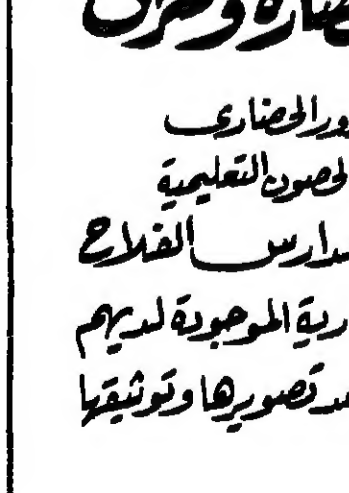 ور الحضارى
لحصون التعليمية
دارس الفلاح
رية الموجودة لديهم
د تصويرها وتوثيقها